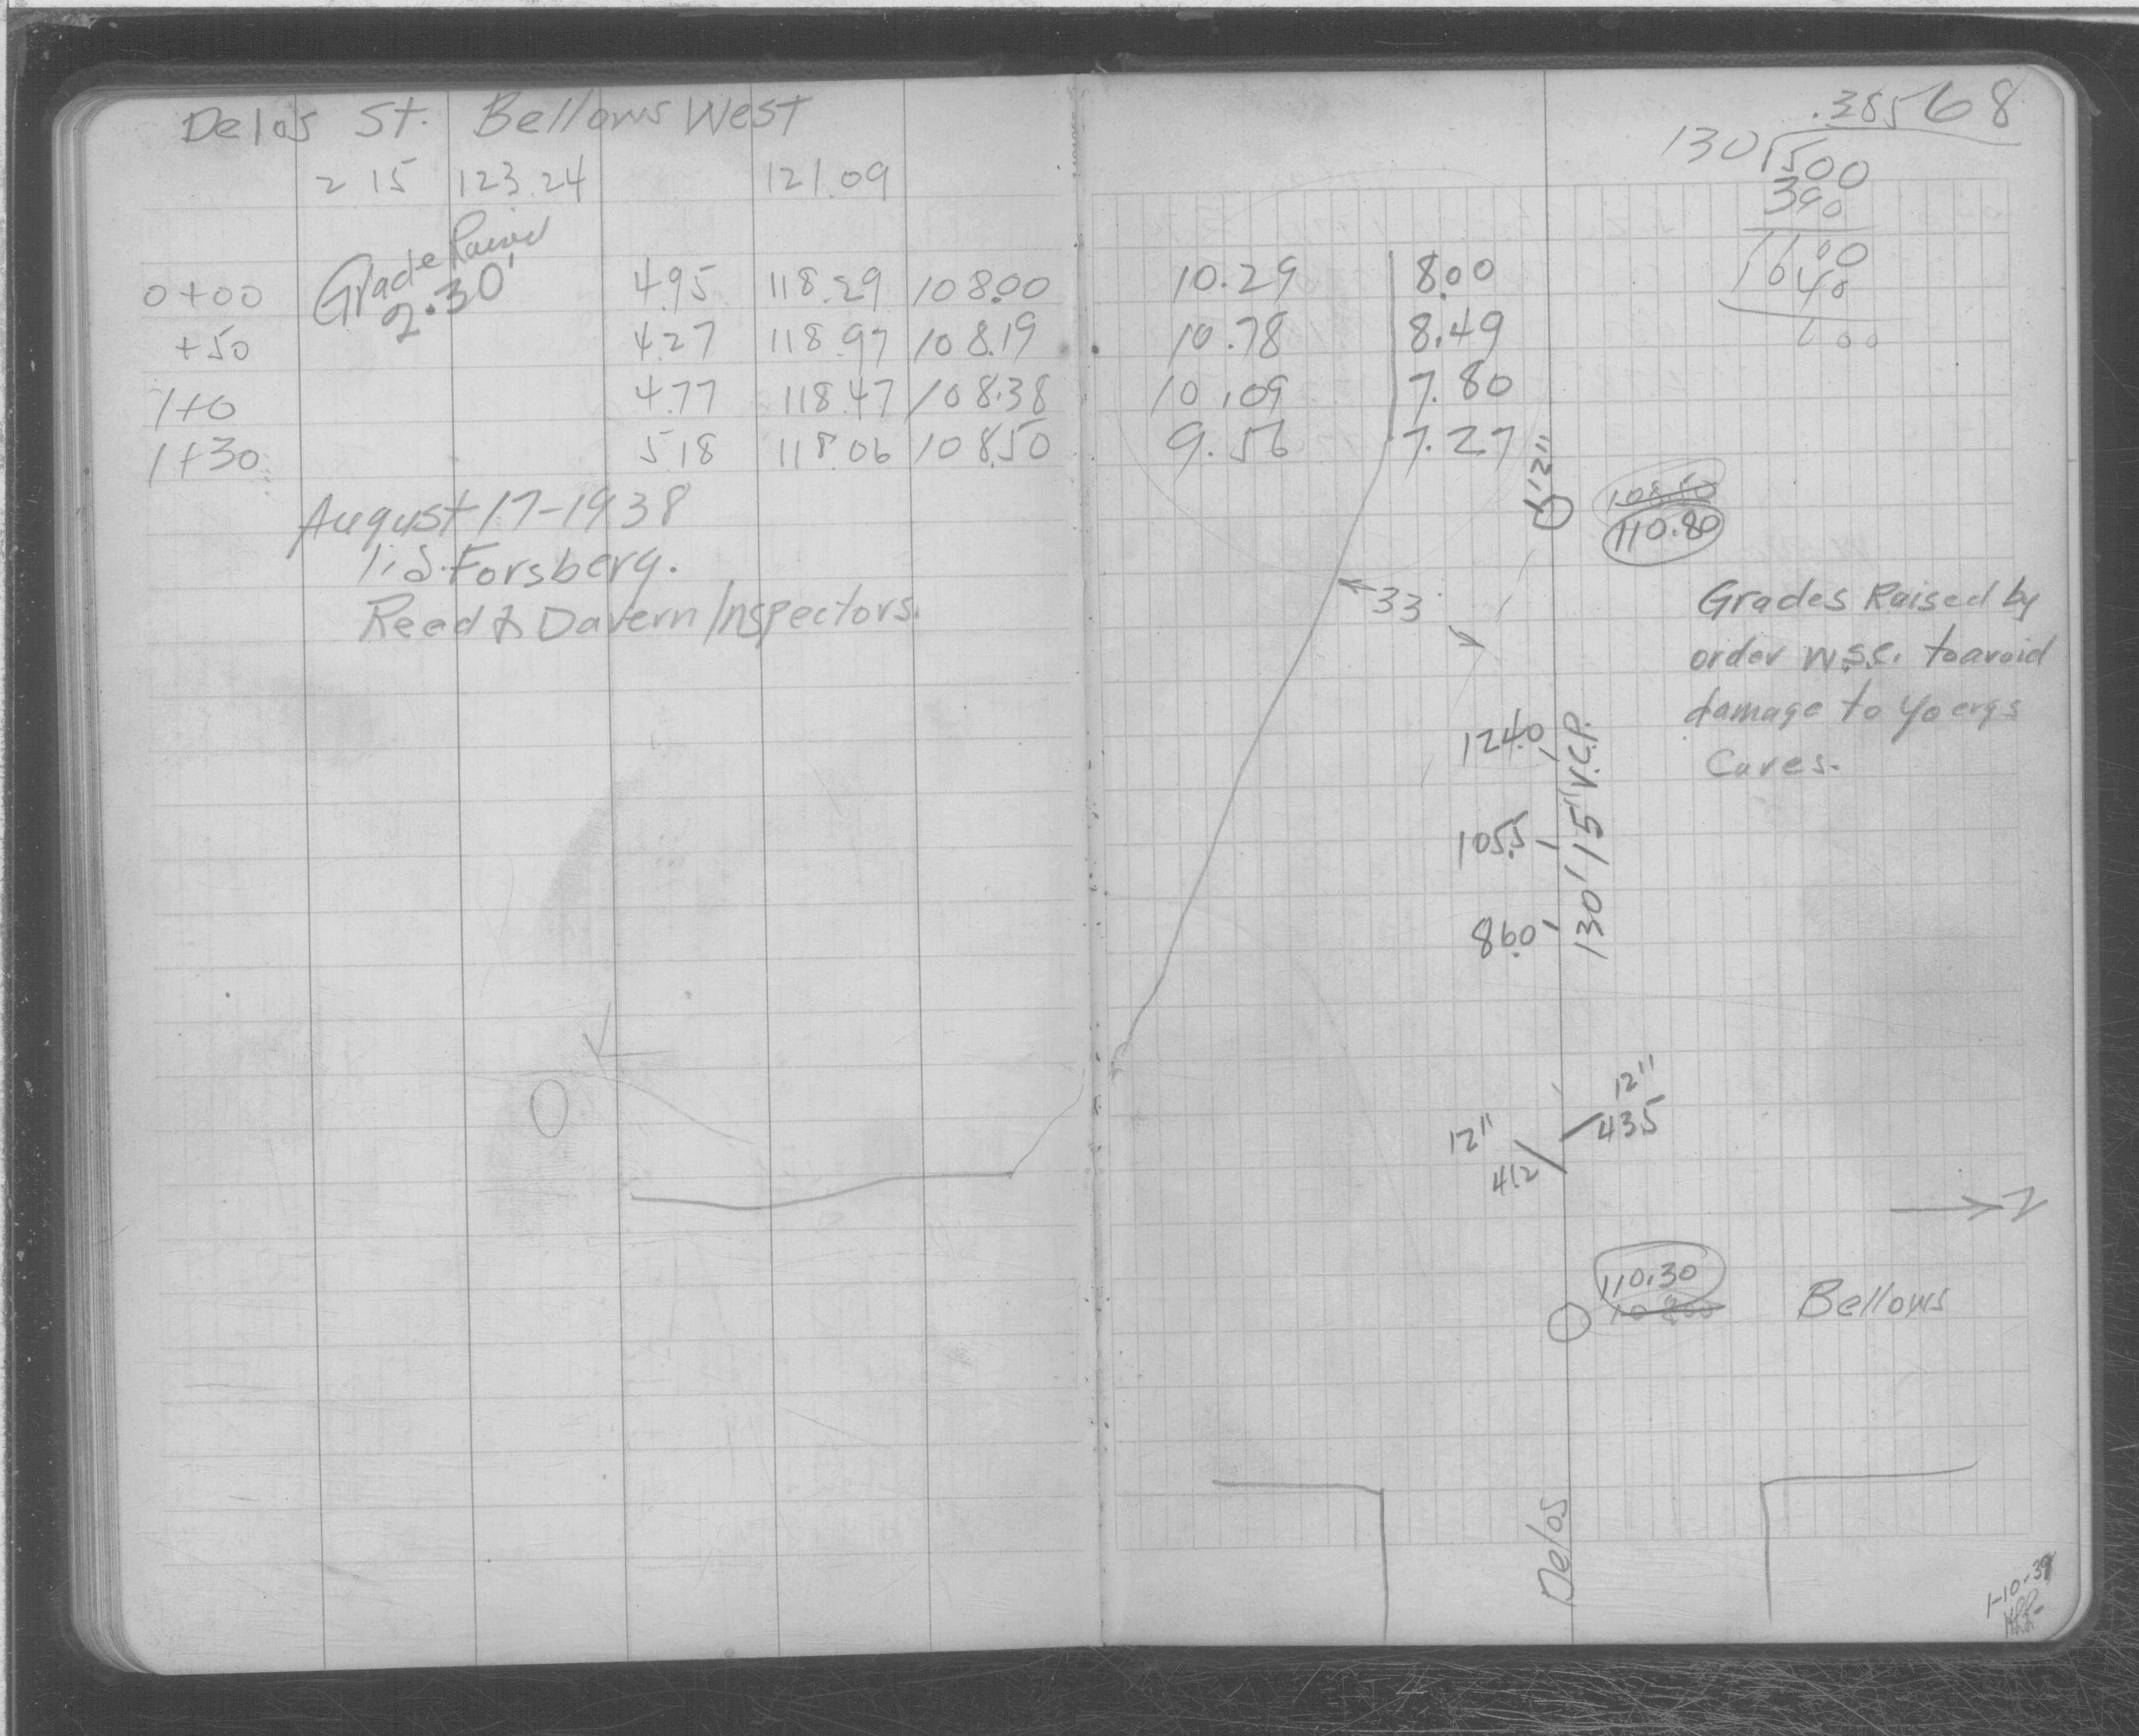 Delos St. Bellows West
2 15 123.24 121.09
Grade Raised
2.30'
0+00 4.95 118.29 108.00
+50 4.27 118.97 108.19
1+0 4.77 118.47 108.38
1+30 5.18 118.06 108.50
August 17-1938
Forsberg.
Reed & Davern Inspectors.
68
.385
130 1500
390
1100
1040
600
10.29 8.00
10.78 8.49
10.09 7.80
9.56 7.27
12"
108.50
110.80
33
Grades Raised by
order W.S.C. to avoid
damage to Yoergs
Caves.
124.0
105.5
86.0
130' 15" V.C.P.
12"
43.5
12"
41.2
N
110.30
108.00
Bellows
Delos
1-10-39